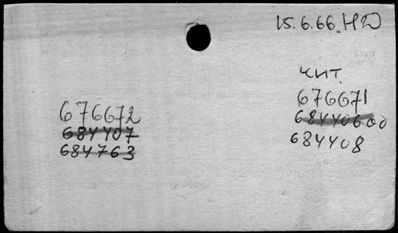 15.6.66. НД
чит.
676672
684407
684763
676671
684406
684408